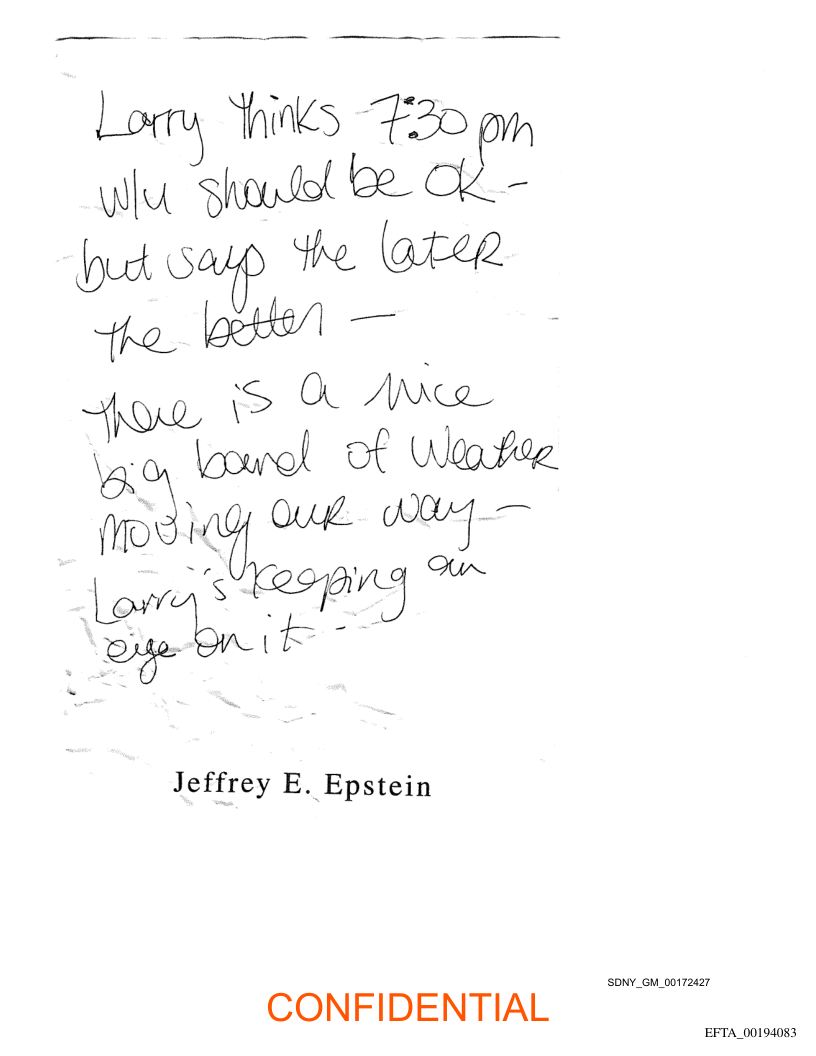 Larry thinks 7:30 pm
w/u should be OK -
but says the later
the better —
there is a nice
big band of weather
moving our way —
Larry's keeping an
eye on it --
Jeffrey E. Epstein
SDNY_GM_00172427
CONFIDENTIAL
EFTA_00194083